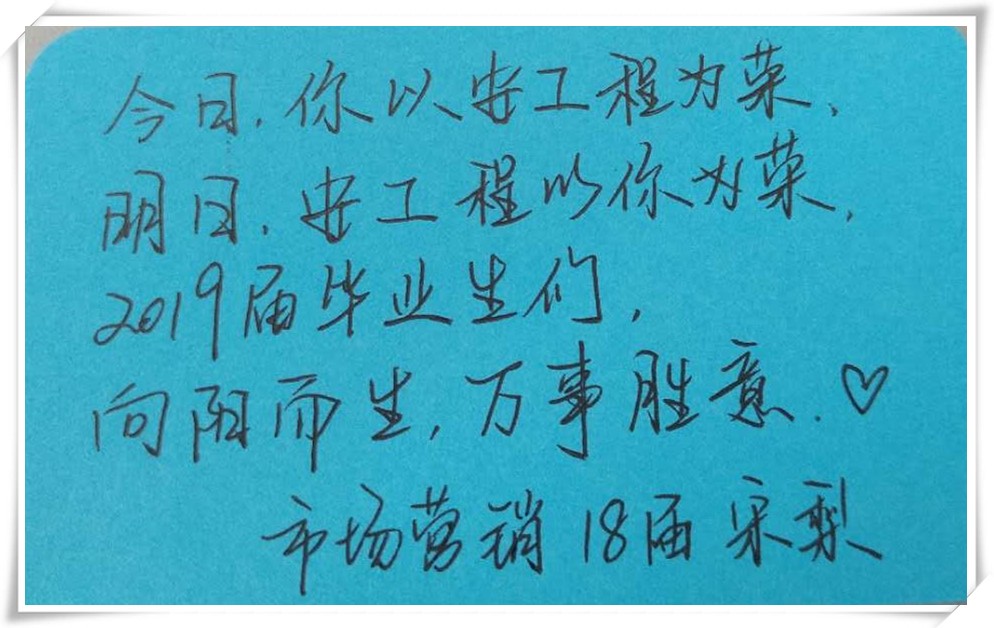 今日,你以安工程为荣,
明日,安工程以你为荣,
2019届毕业生们,
向阳而生,万事胜意.♡
市场营销18届 宋梨